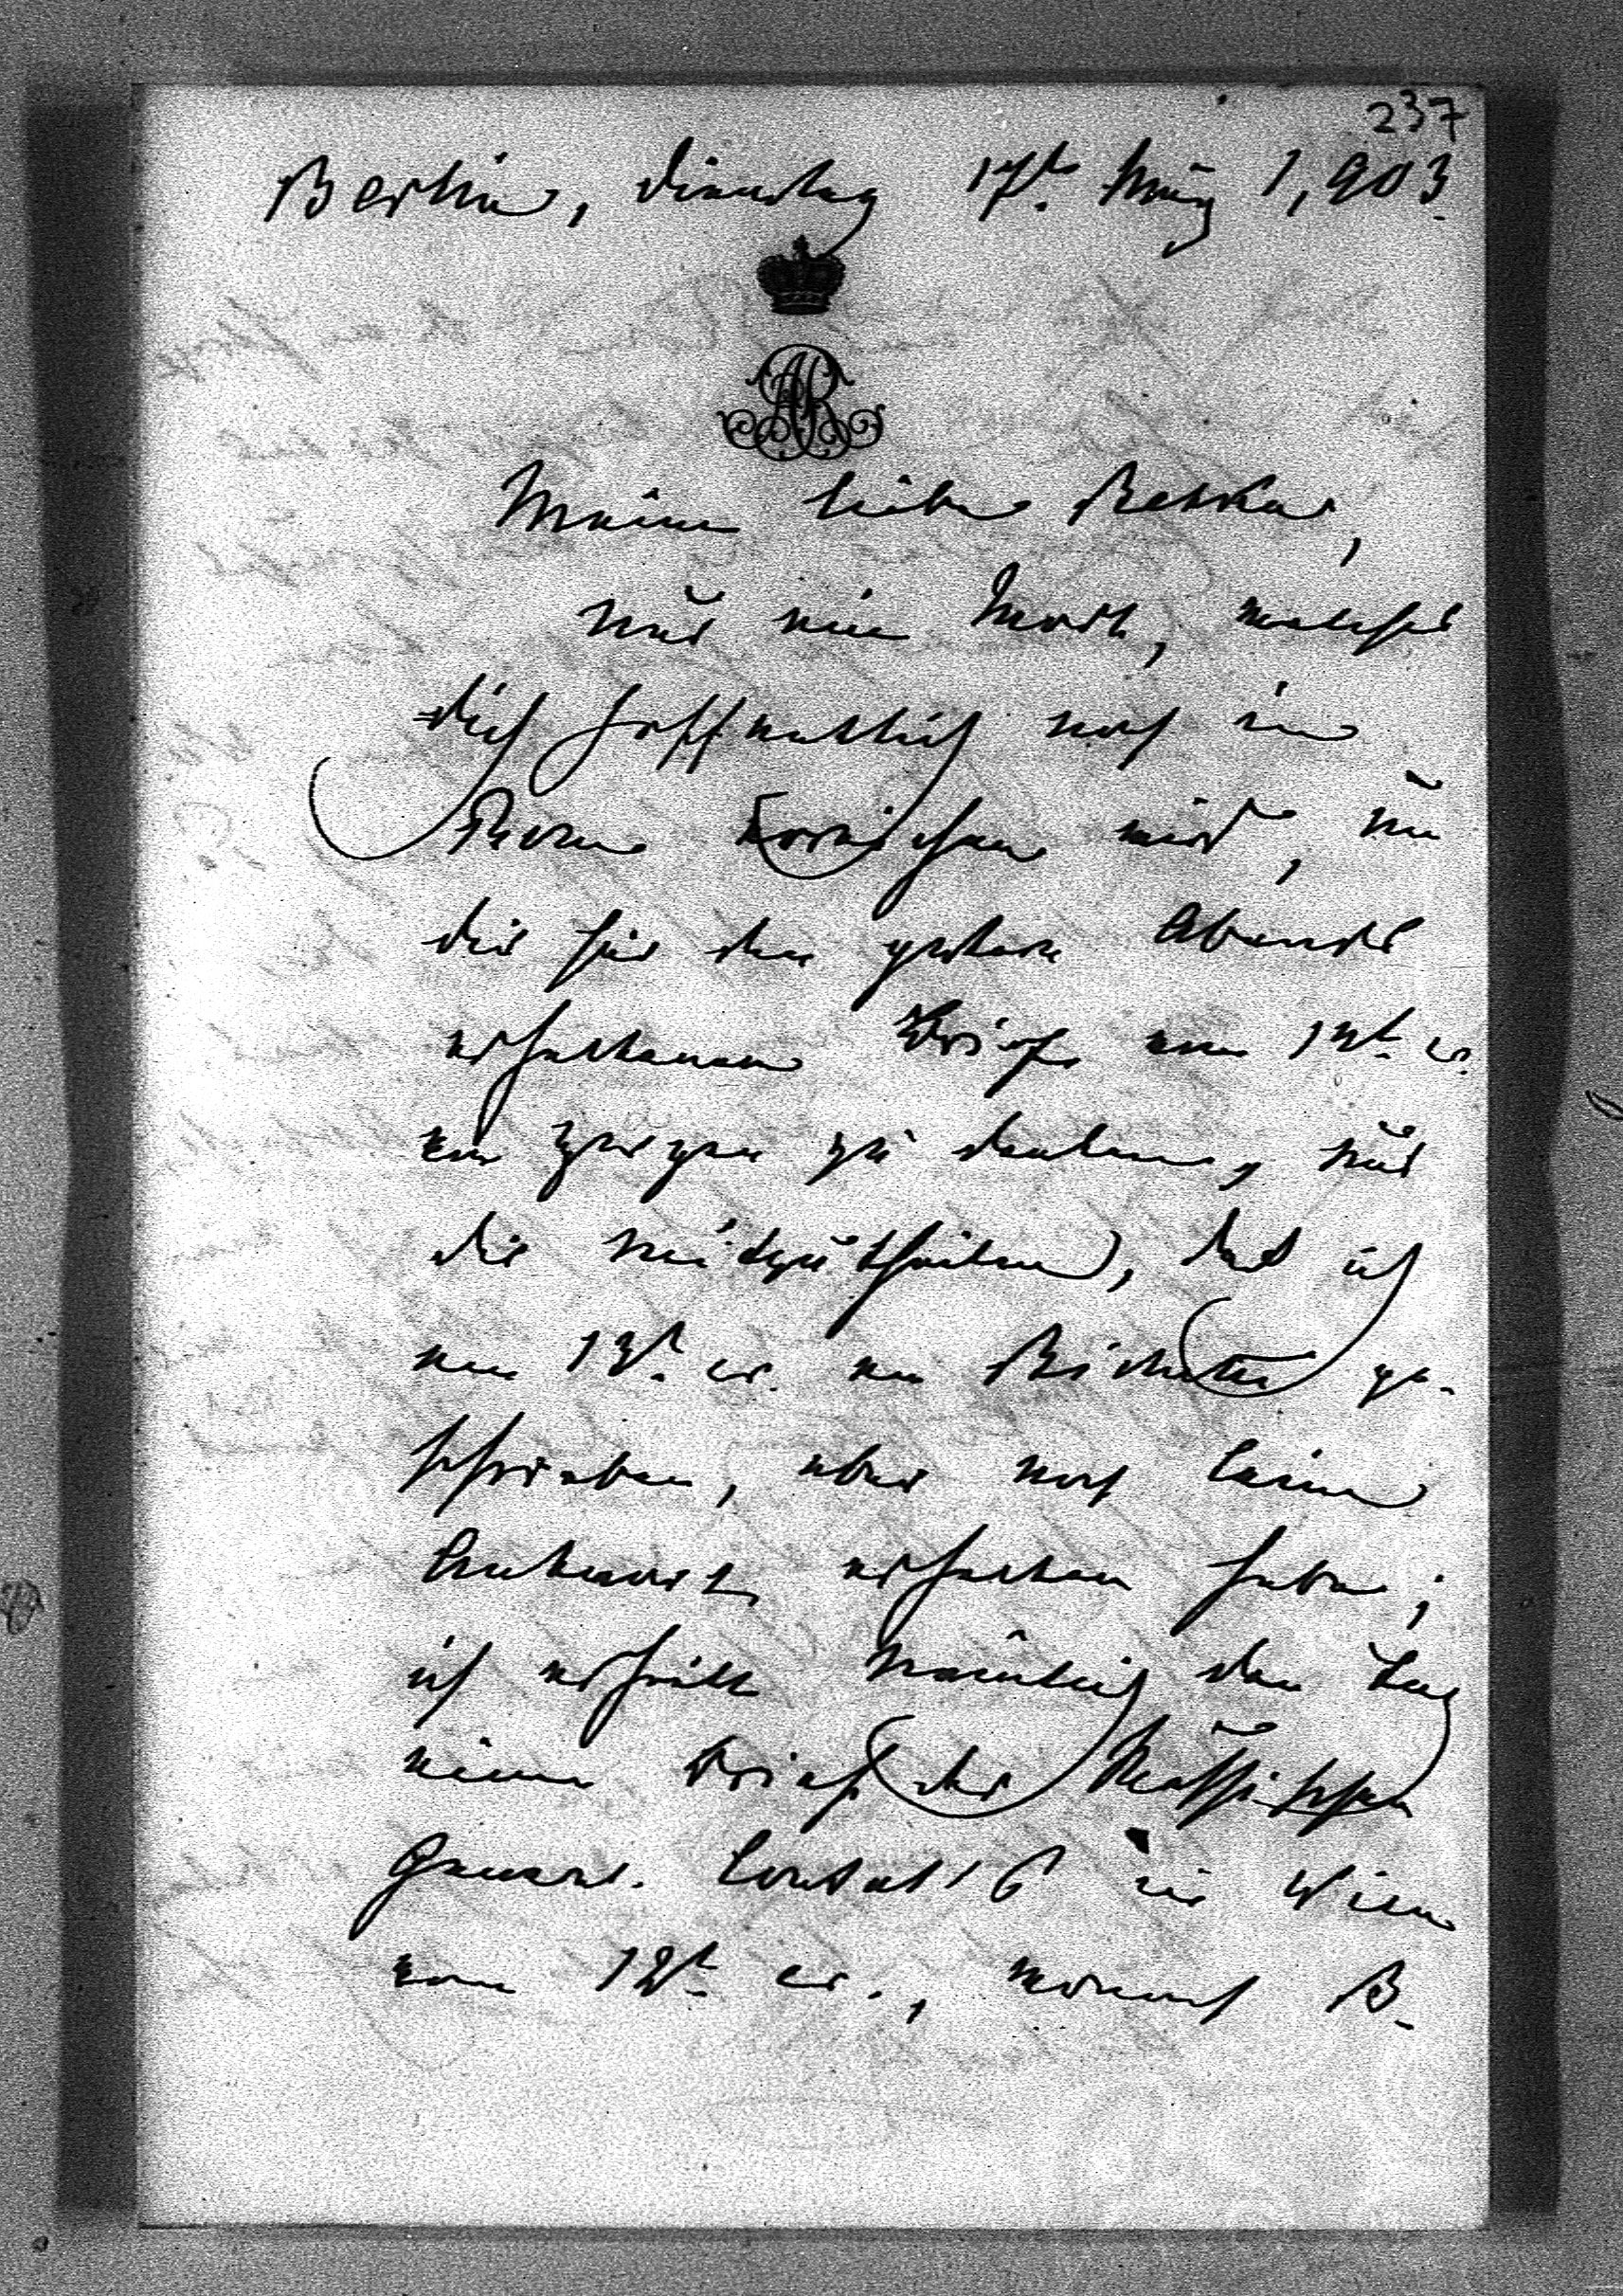 237
Berlin, Dienstag 17t. März 1,903.
AR
Meine liebe Betka,
nur ein Wort, welches
Dich hoffentlich noch in
Rom erreichen wird, um
Dir für den gestern Abends
erhaltenen Brief vom 14t. cr.
von Herzen zu danken, und
Dir mitzutheilen, daß ich
am 13t. cr. an ge-
schrieben, aber noch keine
Antwort erhalten habe;
ich erhielt nämlich den Tag
einen Brief des Russischen
General-Consul's in Wien
vom 12t. cr., wonach B.